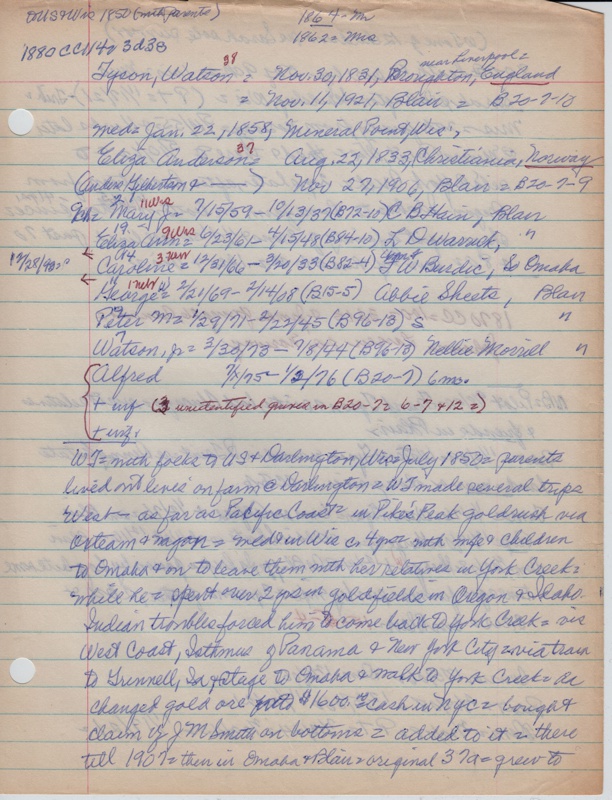 US & Wis 1850 (with parents) 1864 - Wn
1862 = Mrs
1880 CC 1142 3d38
near Liverpool =
38
Tyson, Watson = Nov. 30, 1831, Broughton, England
= Nov. 11, 1921, Blair = B20-7-10
med = Jan. 22, 1858, Mineral Point, Wis.,
37
Eliza Anderson = Aug. 22, 1833, Christiania, Norway
(Anders Gilbertson & — ) Nov 27, 1906, Blair = B20-7-9
Ch = Mary J = 7/15/59 - 10/13/37 (B72-10) C B Hain, Blair
Eliza Ann = 6/23/61 - 4/15/48 (B84-10) L D Warrick, "
12/28/40 = Caroline = 12/31/66 - 3/20/33 (B82-4) F W Burdic, So Omaha
George = 2/21/69 - 2/14/08 (B15-5) Abbie Sheets, Blair
Peter M = 1/29/71 - 2/22/45 (B96-13) S "
Watson, Jr = 3/30/73 - 7/8/44 (B96-13) Nellie Morrill "
Alfred 7/1/75 - 1/2/76 (B20-7) 6 mo.
+ inf (3 unidentified graves in B20-7 = 6-7 & 12 =)
+ inf.
WT = with folks to US & Darlington, Wis = July 1850 = parents
lived out lives on farm @ Darlington = WT made several trips
West - as far as Pacific Coast = in Pike's Peak gold rush via
Oxteam & wagon = med in Wis c. 4 yr with wife & children
to Omaha & on to leave them with her relatives in York Creek =
while he = spent over 2 yrs in goldfields in Oregon & Idaho.
Indian troubles forced him to come back to York Creek = via
West Coast, Isthmus of Panama & New York City = via train
to Grinnell, Ia & stage to Omaha & walk to York Creek = he
changed gold ore into $1600. cash in NYC = bought
claim of J M Smith on bottoms = added to it = there
till 1907 = then in Omaha & Blair = original 37a = grew to